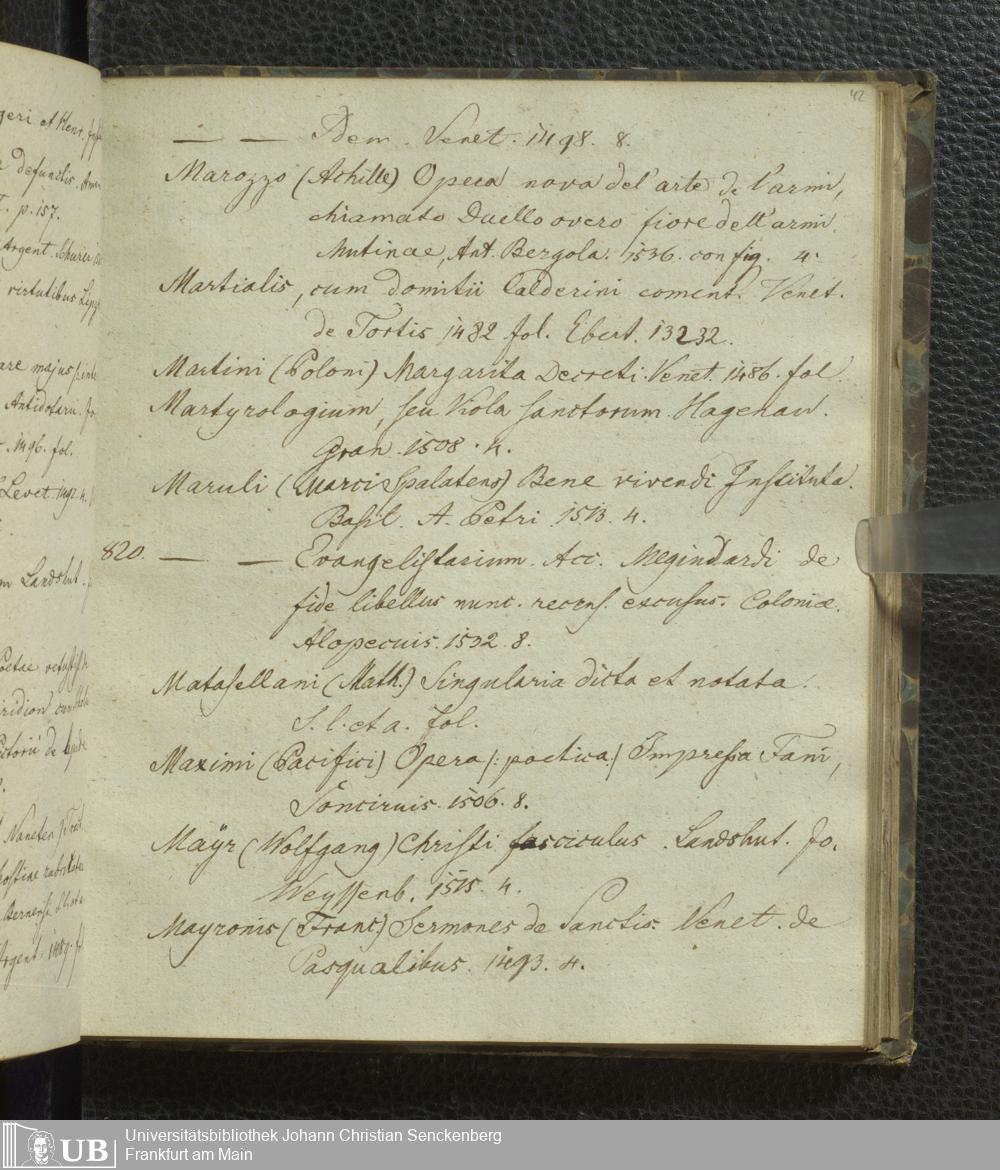 42
— — Idem. Venet. 1498. 8.
Marozzo (Achille) Opera nova del' arte de l'armi,
chiamato Duello overo fiore dell' armi.
Mutinae, Ant. Bergola. 1536. con fig. 4.
Martialis, cum domitii Calderini coment. Venet.
de Tortis 1482 fol. Ebert. 13232.
Martini (Poloni) Margarita Decreti. Venet. 1486. fol.
Martyrologium, seu Viola sanctorum. Hagenau.
Gran. 1508. 4.
Maruli (Marci Spalatens) Bene vivendi Instituta.
Basil. A. Petri 1513. 4.
820. — — Evangelistarium. Acc. Megindardi de
fide libellus nunc. recens. excusus. Coloniæ.
Alopecuis. 1532. 8.
Mataselani (Math.) Singularia dicta et notata.
S. l. et a. fol.
Maximi (Pacifici) Opera /: poetica / Impressa Fani,
Sonciruis. 1506. 8.
Mayr (Wolfgang) Christi fasciculus. Landshut. Jo.
Weyssenb. 1515. 4.
Mayronis (Franc) Sermones de Sanctis. Venet. de
Pasqualibus. 1493. 4.
geri et Henr.
defunctis.
T. p. 157.
Argent. Schurer
virtutibus Lypz
are majus /: inte
Antidotarii. Jo
1496. fol.
Levet. 1492. 4.
m Landshut.
Poetae
ridion
de
Nanceten
Bernensi
Argent. 1489. f
UB
Universitätsbibliothek Johann Christian Senckenberg
Frankfurt am Main